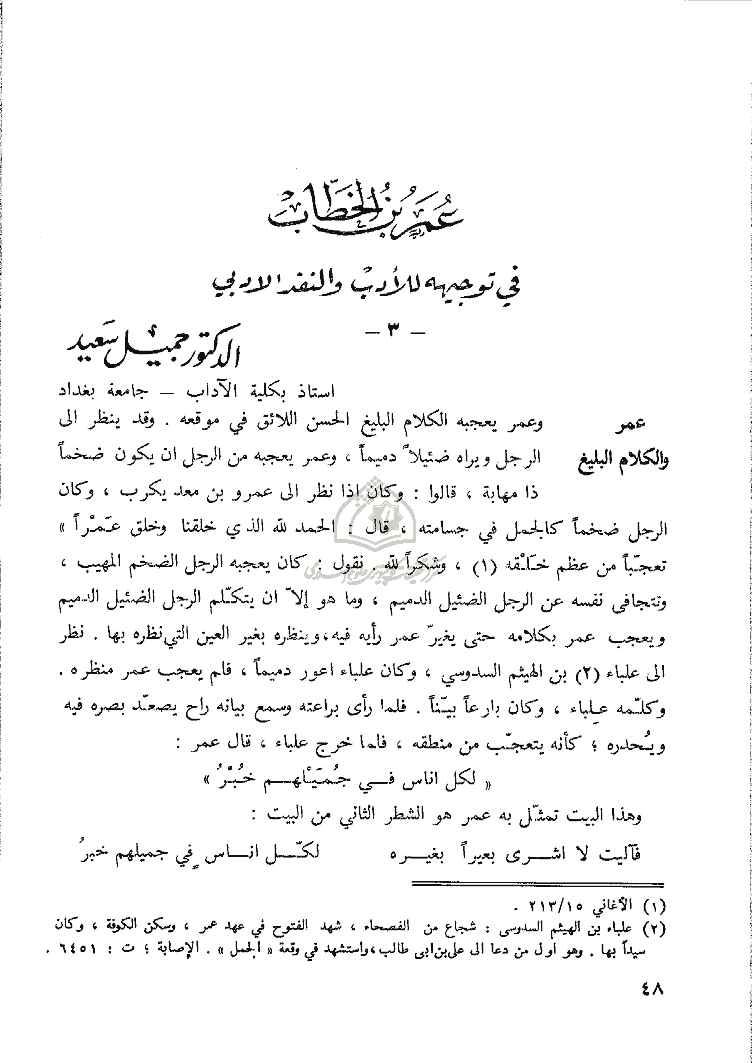 عُمَر بنُ الخطَّاب
في توجيهه للأدب والنقد الادبي
— ٣ —
الدكتور جميل سعيد
استاذ بكلية الآداب — جامعة بغداد
عمر وعمر يعجبه الكلام البليغ الحسن اللائق في موقعه . وقد ينظر الى
والكلام البليغ الرجل ويراه ضئيلاً دميماً ، وعمر يعجبه من الرجل ان يكون ضخماً
ذا مهابة ، قالوا : وكان اذا نظر الى عمرو بن معد يكرب ، وكان
الرجل ضخماً كالجمل في جسامته ، قال : الحمد لله الذي خلقنا وخلق عَمْراً »
تعجّباً من عظم خَلْقه (١) ، وشكراً لله . نقول : كان يعجبه الرجل الضخم المهيب ،
وتتجافى نفسه عن الرجل الضئيل الدميم ، وما هو إلاّ ان يتكلّم الرجل الضئيل الدميم
ويعجب عمر بكلامه حتى يغيرّ عمر رأيه فيه، وينظره بغير العين التي نظره بها . نظر
الى علباء (٢) بن الهيثم السدوسي ، وكان علباء اعور دميماً ، فلم يعجب عمر منظره .
وكلّمه عِلباء ، وكان بارعاً بيّناً . فلما رأى براعته وسمع بيانه راح يصعّد بصره فيه
ويُحدره ؛ كأنه يتعجّب من منطقه ، فلما خرج علباء ، قال عمر :
« لكل اناس فــي جُمَيْلهــم خُبْرُ »
وهذا البيت تمثّل به عمر هو الشطر الثاني من البيت :
فآليت لا اشرى بعيراً بغيــره لكــّل انــاس ٍ في جميلهم خبرُ
(١) الأغاني ٢١٣/١٥ .
(٢) علباء بن الهيثم السدوسى : شجاع من الفصحاء ، شهد الفتوح في عهد عمر ، وسكن الكوفة ، وكان
سيداً بها . وهو أول من دعا الى على بن ابى طالب، واستشهد في وقعة « الجمل » . الإصابة ؛ ت : ٦٤٥١ .
٤٨